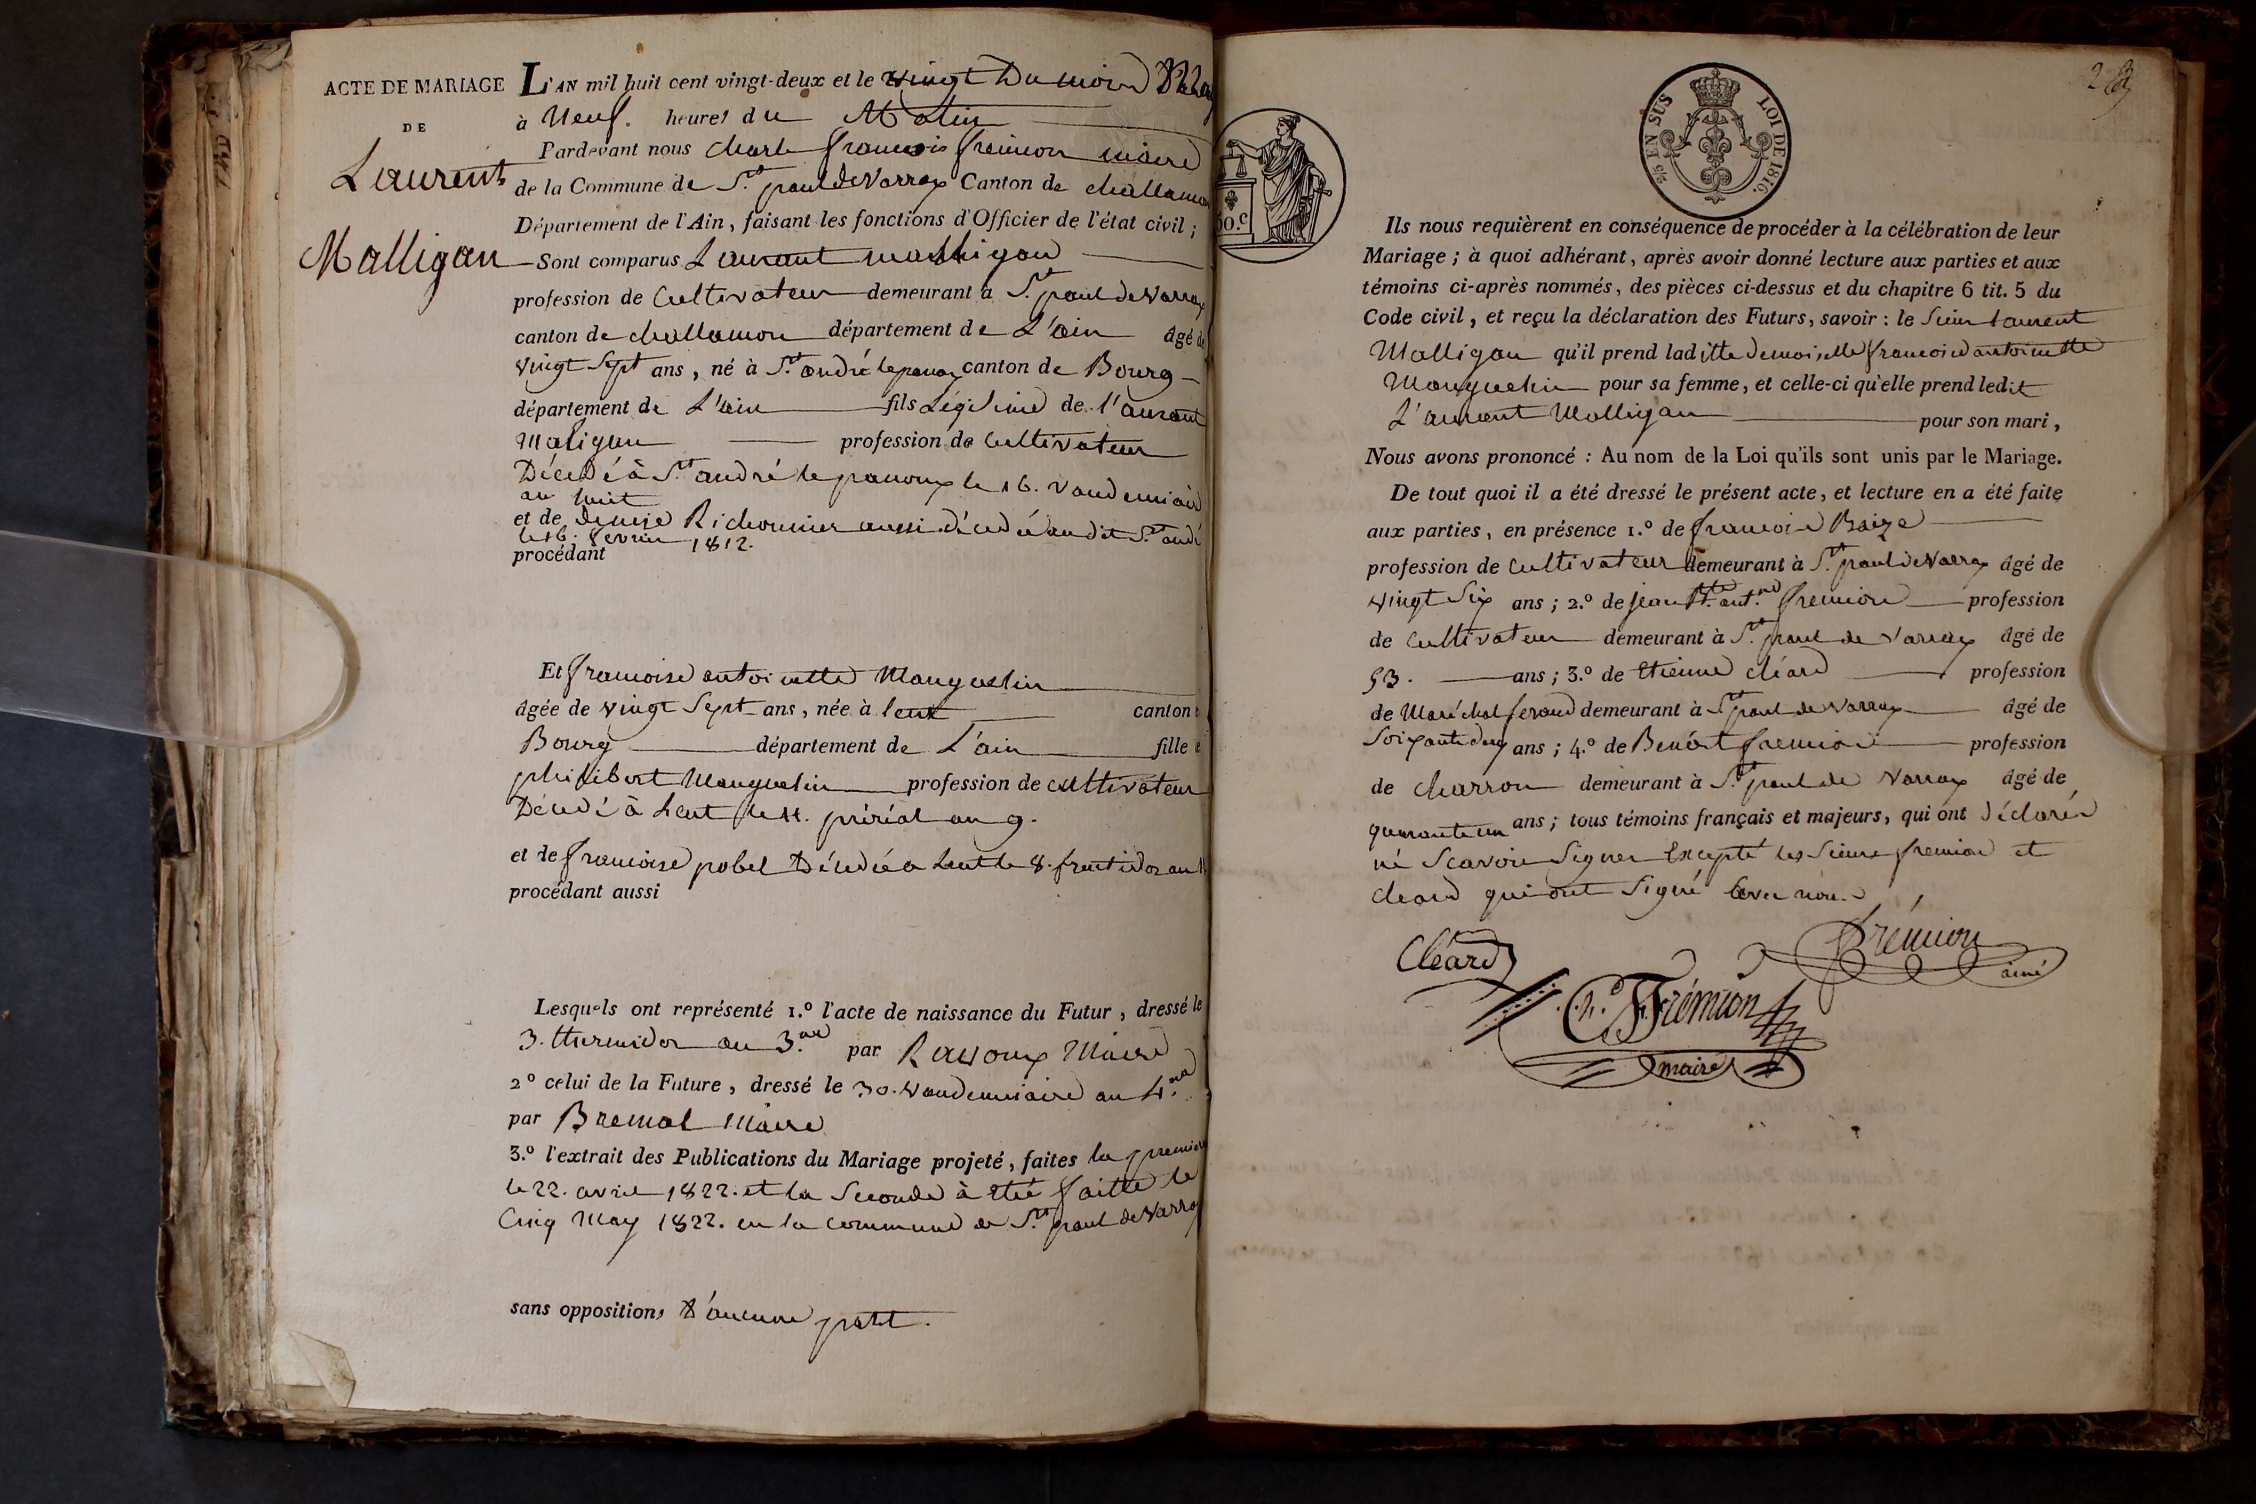 ACTE DE MARIAGE
DE
Laurent
Malligan
L'AN mil huit cent vingt-deux et le vingt Du mois De may
à Neuf heures du Matin
Pardevant nous charle francois fremion maire
de la Commune de St paul de Varrax Canton de challamon
Département de l'Ain, faisant les fonctions d'Officier de l'état civil;
Sont comparus Laurant malligan
profession de Cultivateur demeurant à St paul de Varrax
canton de challamon département de L'ain âgé de
vingt Sept ans, né à St andré le panoux canton de Bourg
département de L'ain fils Légitime de l'aurant
Maligan profession de Cultivateur
Décedé à St andré le panoux le 16. vandemiair
an huit
et de denise Richonnier aussi décedée audit St andré
le 16. fevrier 1812.
procédant
Et francoise antoinette Manguelin
âgée de vingt Sept ans, née à lent canton
Bourg département de L'ain fille
philibert Manguelin profession de cultivateur
Décedé à Lent le 11. prérial an 9.
et de francoise pobel Décedée a Lent le 8. fructidor an
procédant aussi
Lesquels ont représenté 1.º l'acte de naissance du Futur, dressé le
3. thermidor an 3.me par Ravoux Maire
2º celui de la Future, dressé le 30. vandemiaire an 4.me
par Bremal Maire
3.º l'extrait des Publications du Mariage projeté, faites la premiere
le 22. avril 1822. et la Seconde à été faitte le
Cinq May 1822. en la commune de St paul de Varrax
sans opposition, d'aucune part.
5/5 EN SUS LOI DE 1816.
50.c
Ils nous requièrent en conséquence de procéder à la célébration de leur
Mariage; à quoi adhérant, après avoir donné lecture aux parties et aux
témoins ci-après nommés, des pièces ci-dessus et du chapitre 6 tit. 5 du
Code civil, et reçu la déclaration des Futurs, savoir: le Sieur Laurent
Malligan qu'il prend laditte demoiselle francoise antoinette
Manguelin pour sa femme, et celle-ci qu'elle prend ledit
L'aurant Malligan pour son mari,
Nous avons prononcé: Au nom de la Loi qu'ils sont unis par le Mariage.
De tout quoi il a été dressé le présent acte, et lecture en a été faite
aux parties, en présence 1.º de francois Baize
profession de Cultivateur demeurant à St paul de Varrax âgé de
vingt Six ans; 2.º de jean Bte antne fremion profession
de Cultivateur demeurant à St paul de Varrax âgé de
53. ans; 3.º de Etienne cléard profession
de Maréchal ferand demeurant à St paul de Varrax âgé de
Soixante deux ans; 4.º de Benoit fremion profession
de charron demeurant à St paul de Varrax âgé de
quarante un ans; tous témoins français et majeurs, qui ont déclarés
né Scavoir Signer Excepté les Sieurs fremion et
cleard qui ont Signé avec nous
Cléard
Frémion
ainé
Ch. Frémion
maire